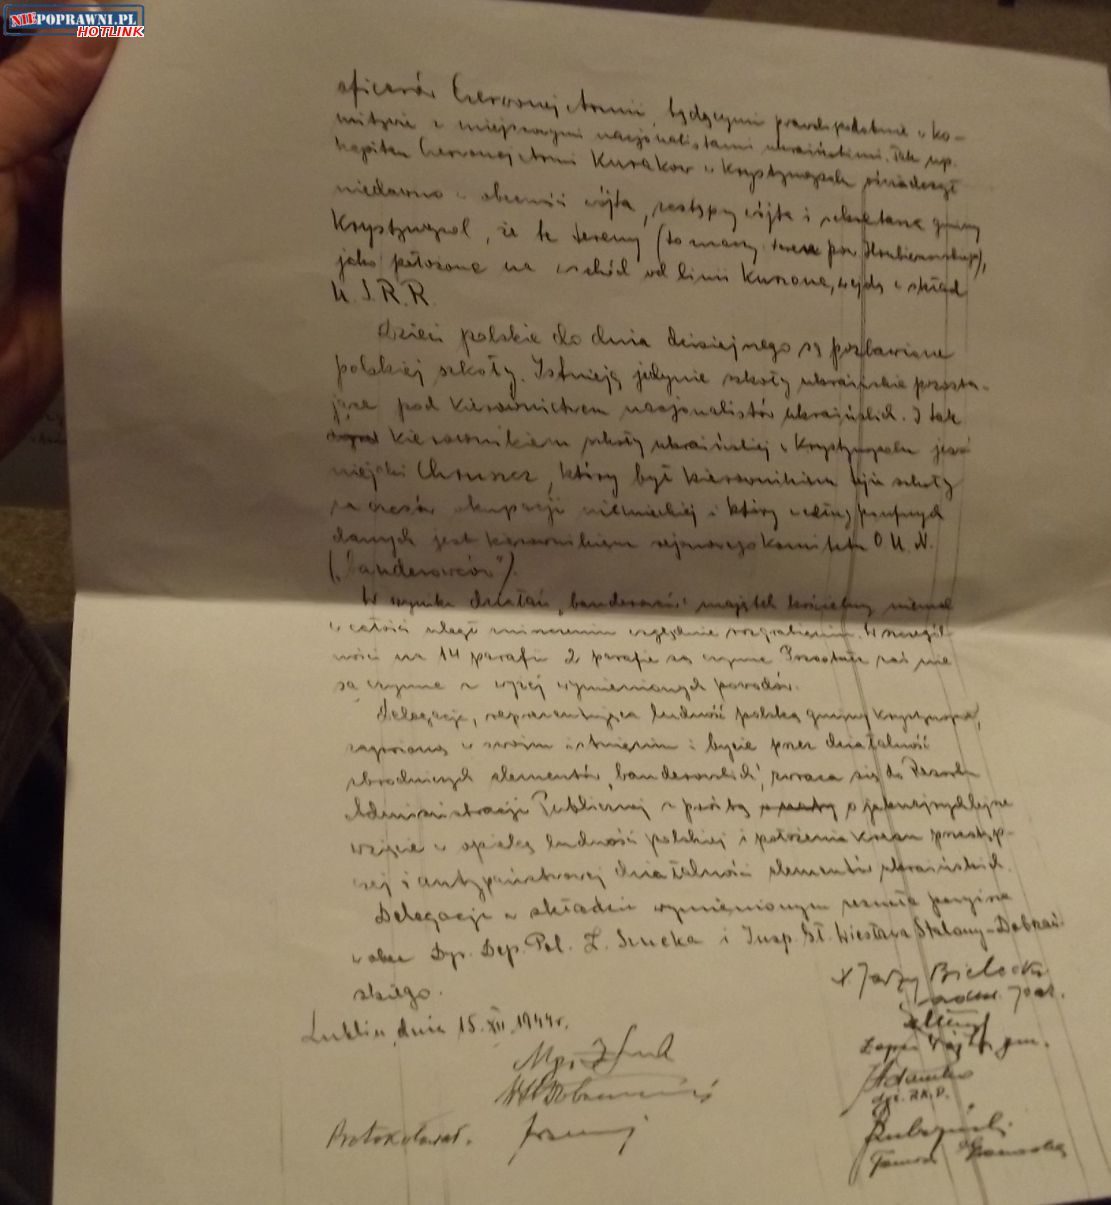 NIEPOPRAWNI.PL
HOTLINK
oficerów Czerwonej Armii, będącymi prawdopodobnie w ko-
mitywie z miejscowymi nacjonalistami ukraińskimi. Tak np.
kapitan Czerwonej Armii Kurakow w Krystynopolu oświadczył
niedawno w obecności wójta, zastępcy wójta i sekretarza gminy
Krystynopol, że te tereny (to znaczy teren pow. Hrubieszowskiego),
jako położone na wschód od linii Kurzona, wejdą w skład
U.S.R.R.
Dzieci polskie do dnia dzisiejszego są pozbawione
polskiej szkoły. Istnieją jedynie szkoły ukraińskie pozosta-
jące pod kierownictwem nacjonalistów ukraińskich. I tak
kierownikiem szkoły ukraińskiej w Krystynopolu jest
niejaki Chruszcz, który był kierownikiem tejże szkoły
za czasów okupacji niemieckiej i który według poufnych
danych jest kierownikiem rejonowego Komitetu O.U.N.
("banderowców").
W wyniku działań "banderowców" majątek kościelny niemal
w całości uległ zniszczeniu względnie rozgrabieniu. W szczegól-
ności na 14 parafii 2 parafie są czynne. Pozostałe zaś nie
są czynne z wyżej wymienionych powodów.
Delegacja, reprezentująca ludność polską gminy Krystynopol,
zagrożoną w swoim istnieniu i bycie przez działalność
zbrodniczych elementów "banderowskich", zwraca się do Resortu
Administracji Publicznej z prośbą o jaknajrychlejsze
wzięcie w opiekę ludności polskiej i położenie kresu przestęp-
czej i antypaństwowej działalności elementów ukraińskich.
Delegacja w składzie wymienionym zeznała powyższe
wobec Dyr. Dep. Pol. Z. Szneka i Insp. St. Wiesława Stalony-Dobrzań-
skiego.
Lublin, dnia 15.XII.1944r.
X Jerzy Bielecki
Mgr
wójt gm.
Adamko
Protokołował.
Rubczyński